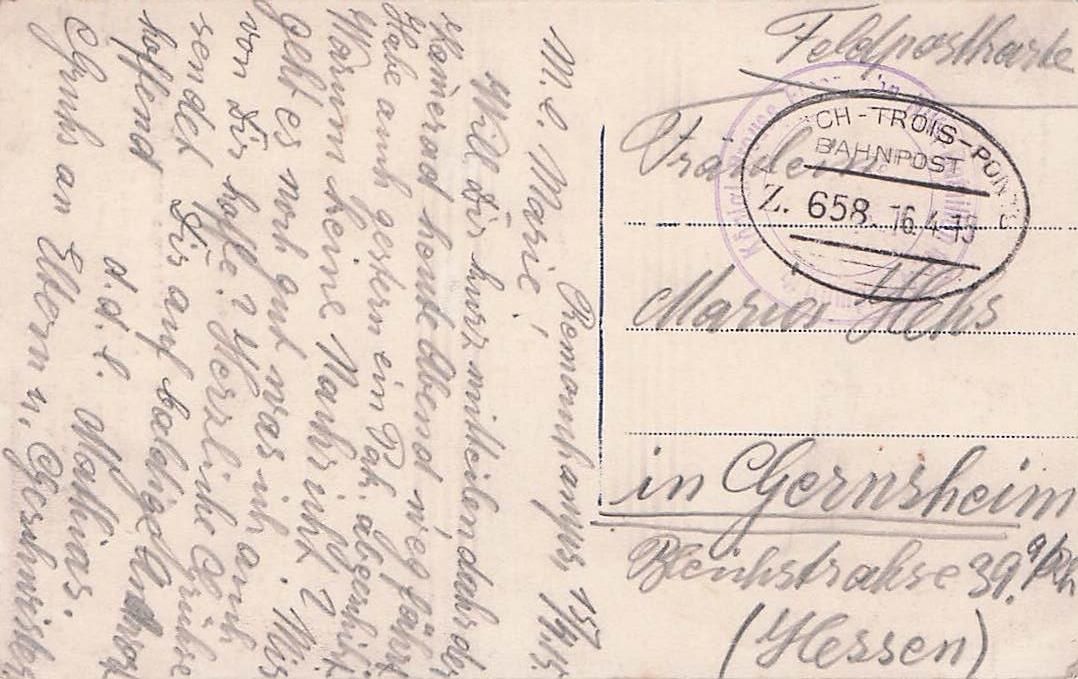 Feldpostkarte
Fräulein
Maria Hehs
in Gernsheim
Bleichstrahse 39. a/Rh
(Hessen)
CH-TROIS-PONTS
BAHNPOST
Z. 658 16.4.15
15/4/15
M. l. Marie!
Will Dir kurz mitteilen dahs der
Kamerad heute Abend wegfährt
Habe auch gestern ein Pak. abgeschickt
Worum keine Nachricht? Mir
geht es noch gut was ich auch
von Dir hoffe? Herzliche Grühse
sendet Dir auf baldige Antwor
hoffend d. d. l. Mathias.
Gruhs an Eltern u. Geschwister